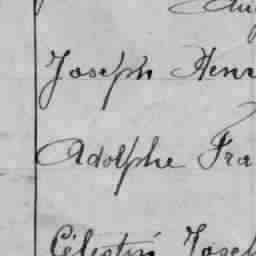 Joseph Henr
Adolphe Fra
Célestin Josep